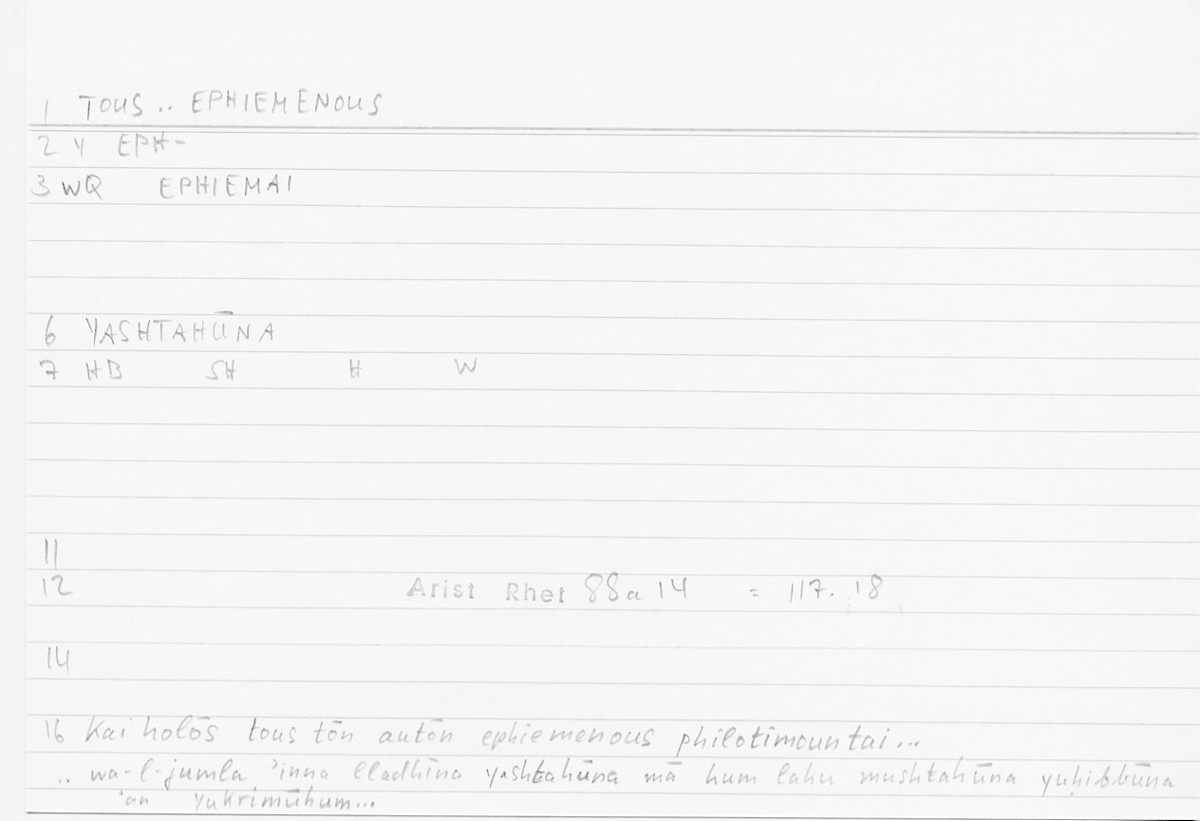 1 TOUS .. EPHIEMENOUS
2 4 EPH-
3 WQ EPHIEMAI
6 YASHTAHŪNA
7 HB SH H W
11
12 Arist Rhet 88a 14 = 117.18
14
16 Kai holōs tous tōn autōn ephiemenous philotimountai...
.. wa-l-jumla ʾinna lladhīna yashtahūna mā hum lahu mushtahūna yuḥibbūna
ʾan yukrimūhum...